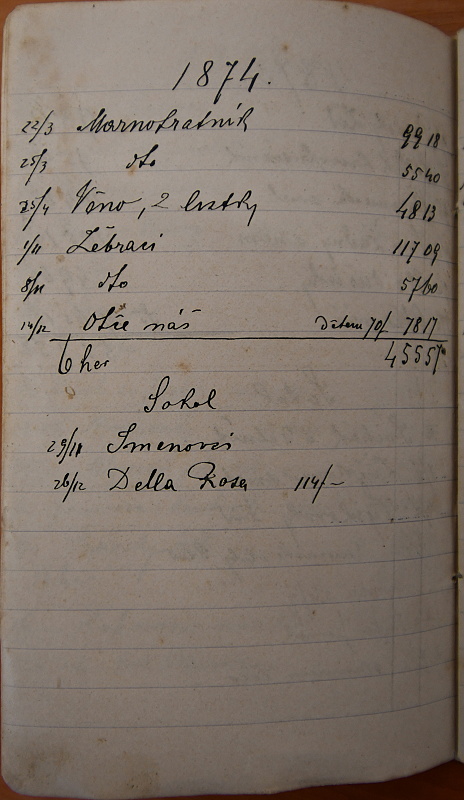 1874.
22/3 Marnotratník 9918
25/3 dto 5540
25/4 Víno, 2 lístky 4813
1/11 Žebráci 11709
8/11 dto 5760
14/12 Otče náš dětem 70/ 7817
6 her 45557
Sokol
29/11 Jmenovci
26/12 Della Rosa 114/-